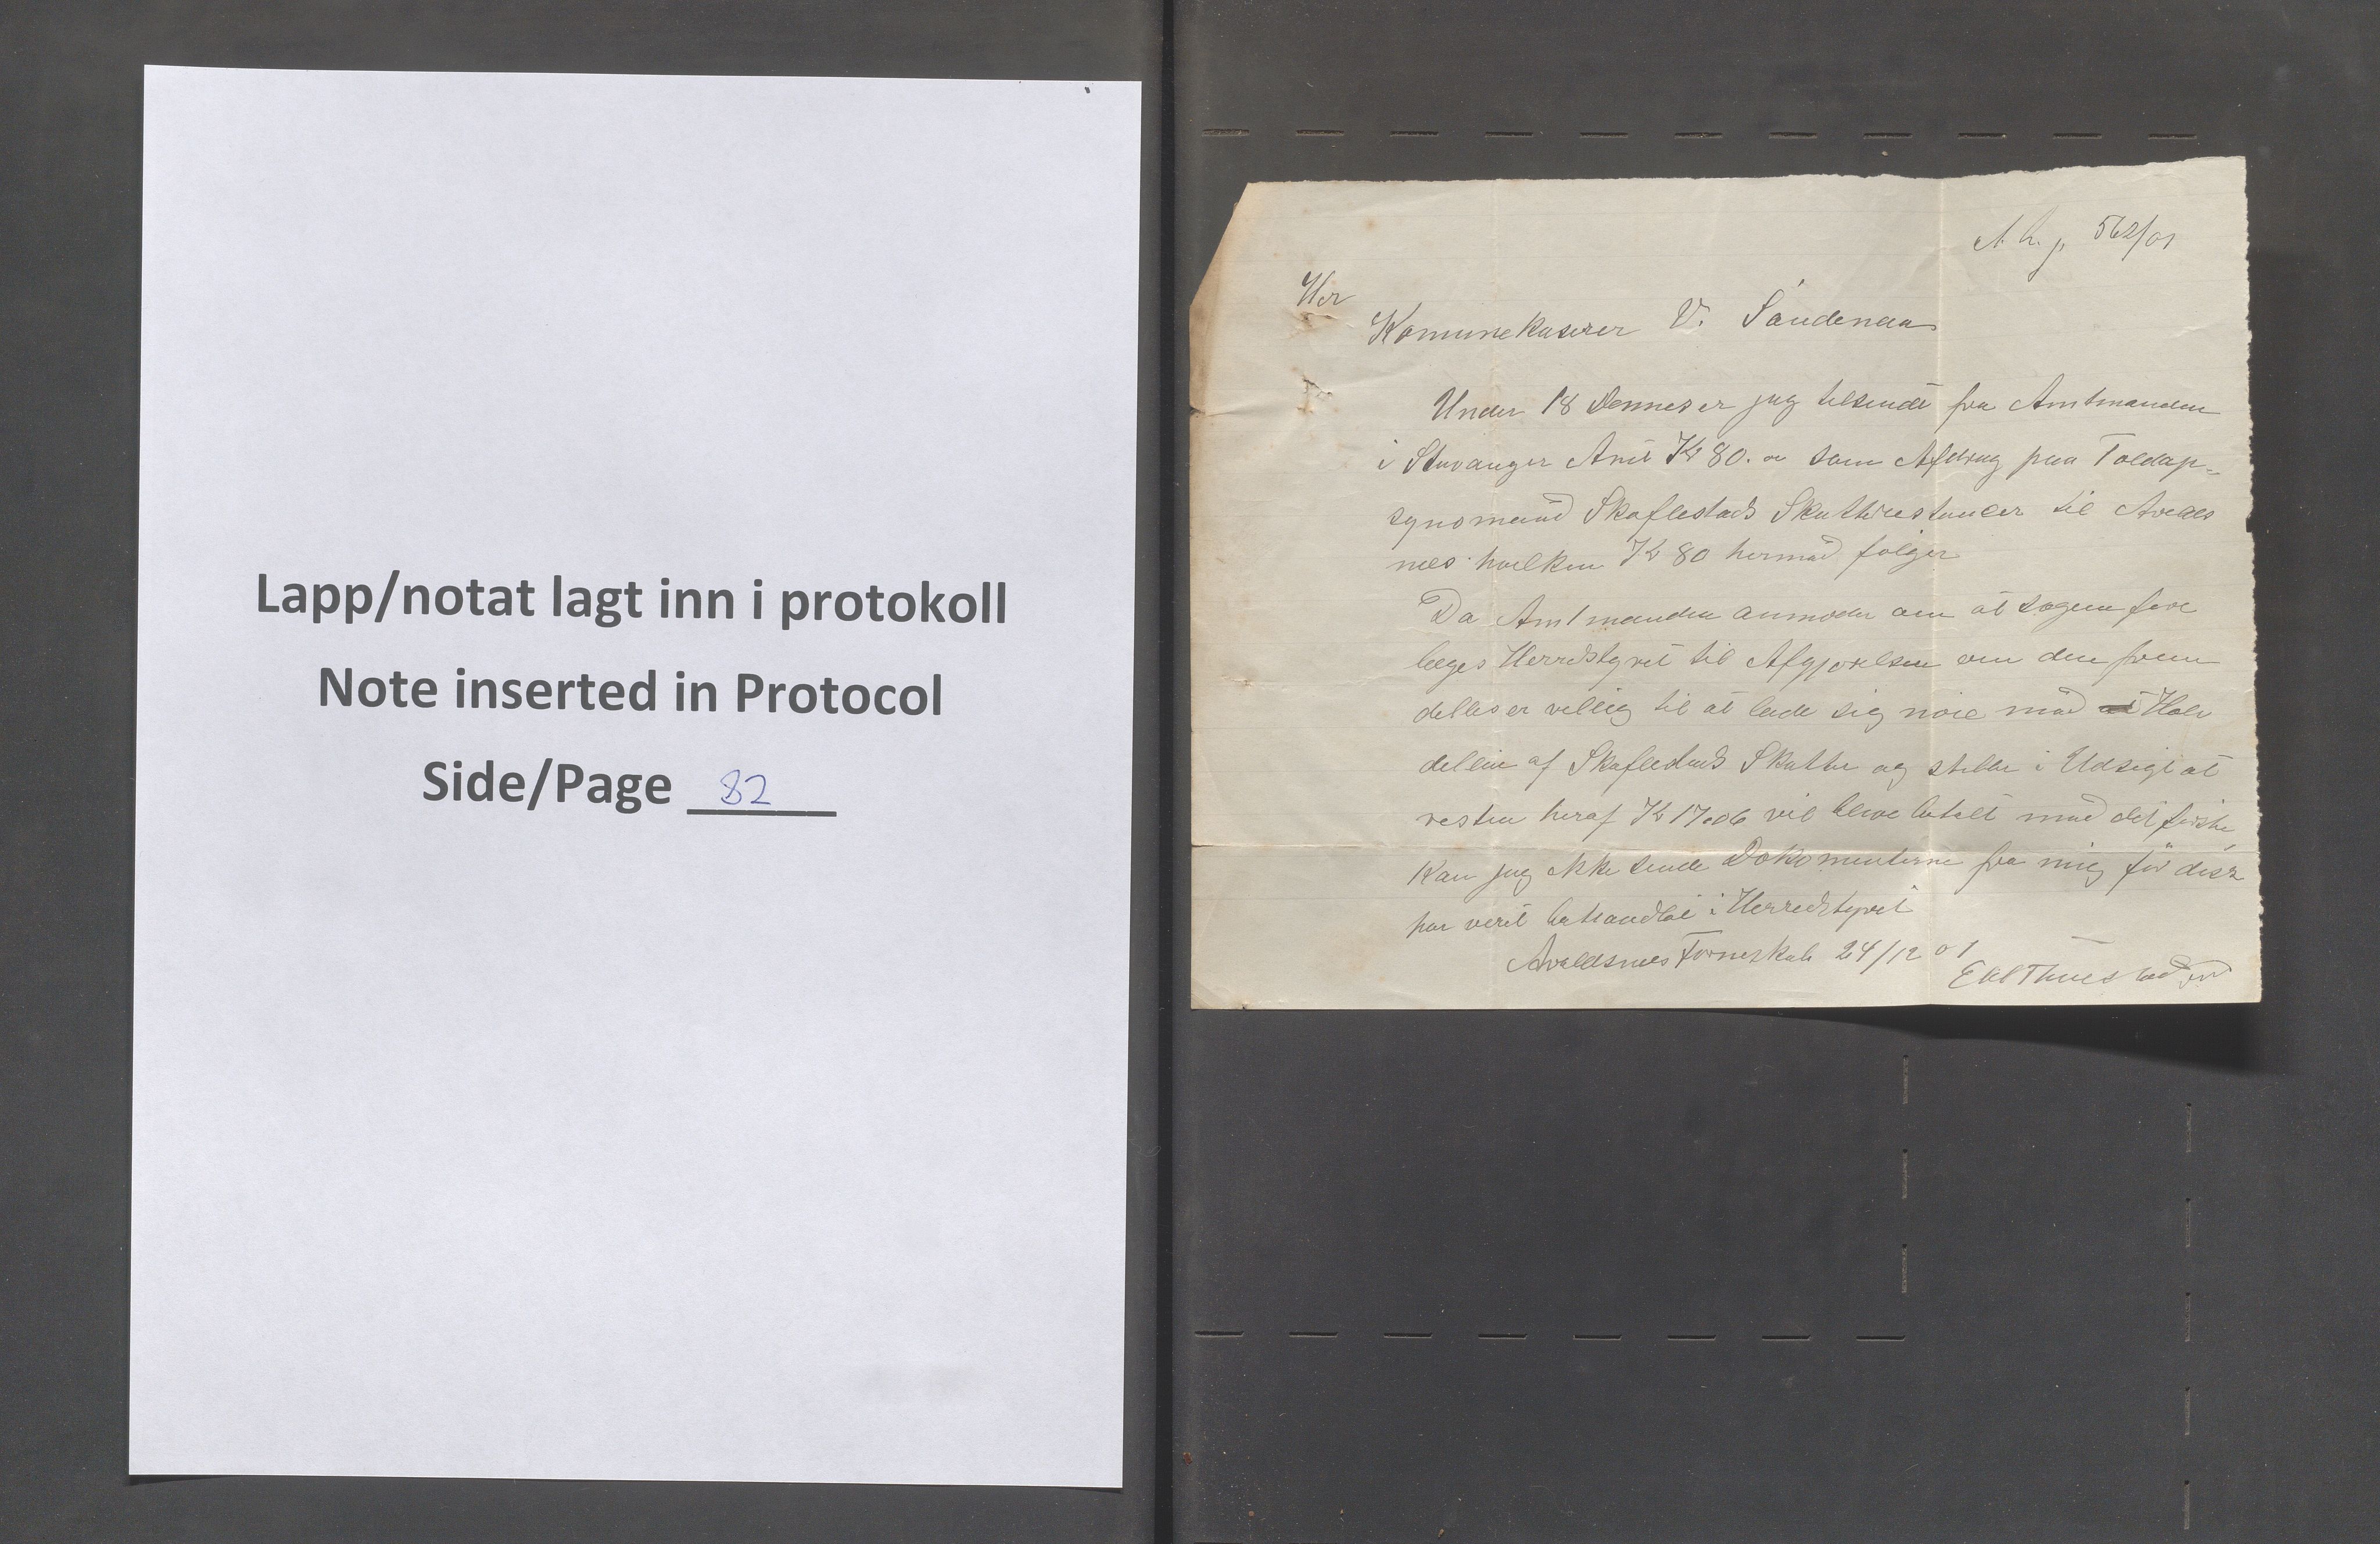 Lapp/notat lagt inn i protokoll
Note inserted in Protocol
Side/Page 82
A. h. j. 562/01
Her
Komunekaserer V. Sandenaas
Under 18 Dennes er jeg tilsendt fra Amtmanden
i Stavanger Amt Kr 80. som Afdrag paa Toldop-
synsmand Skoflestads Skatterestancer til Avalds
nes hvilken Kr 80 hermed følger
Da Amtmanden anmoder om at sagen fore
læges Herredstyret til Afgjørelsen om den frem
deles er vellig til at lade sig nøie med Halv
delen af Skoflestads Skatter og stiller i Udsigt at
resten heraf Kr 17.06 vil blive betalt med det første
Kan jeg ikke sende Dokomenterne fra mig før disse
har veret behandlet i Herredstyret
Avaldsnes Formeskab 24/12 01